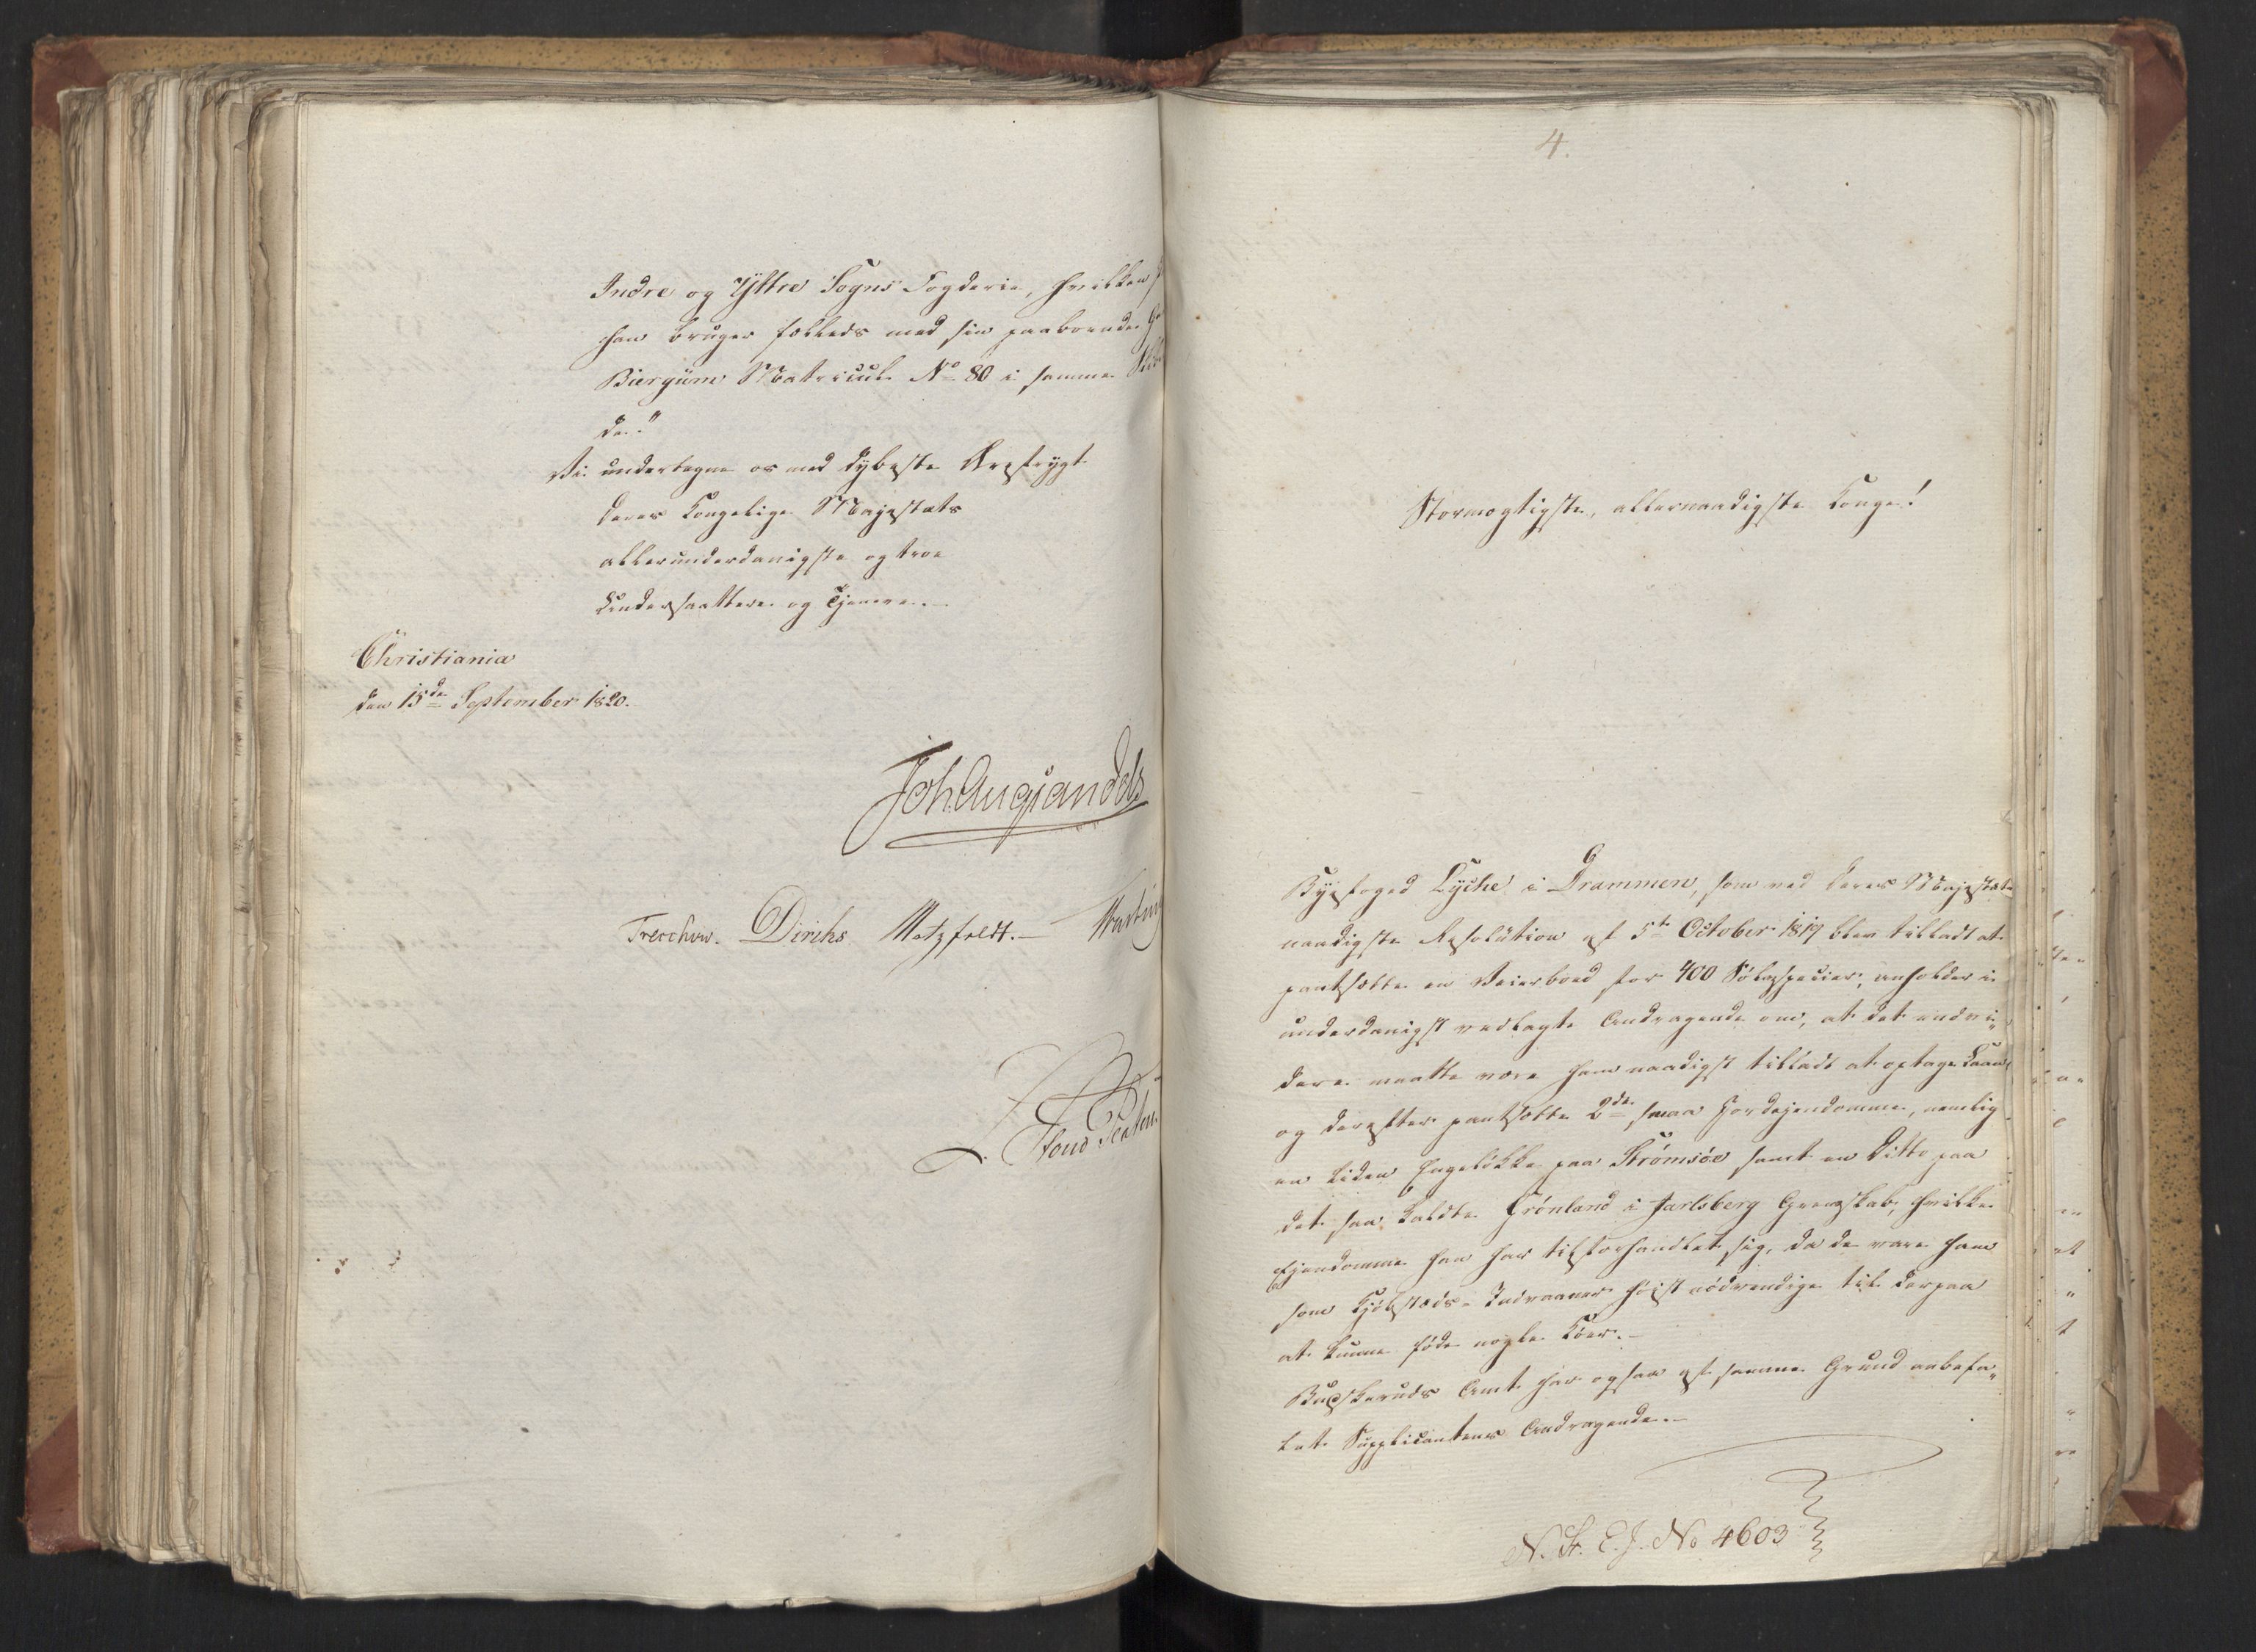 Indre og Yttre Sogns Fogderie, hvilken
han bruger fælleds med sin paaboende
Biergum Matricul No 80 i samme
de."
Vi undertegne os med dybeste Ærefrygt
Deres Kongelige Majestæts
allerunderdanigste og troe
Undersaatter og Tjenere.
Christiania
den 15de September 1820.
Joh. Aug. Sandels
Treschow. Diriks Motzfeldt.
4.
Stormægtigste, allernaadigste Konge!
Byefoged Lyche i Drammen, som ved Deres Majestæts
naadigste Resolution af 5te October 1819 blev tilladt at
pantsætte en Veierboed for 400 Sølvspecier, anholder i
underdanigst vedlagte Andragende om, at det endvi„
dere maatte være ham naadigst tilladt at optage Laan
og derefter pantsætte 2de smaa Jordejendomme, nemlig
en liden Engeløkke paa Strømsøe samt en Ditto paa
det saa kaldte Grønland i Jarlsberg Grevskab, hvilke
Ejendomme han har tilforhandlet sig, da de vare ham
som Kjøbstæds-Indvaaner høist nødvendige til derpaa
at kunne føde nogle Køer.
Buskeruds Amt har ogsaa af samme Grund anbefa„
let Supplicantens Andragende.
N. St. E. J. No 4603